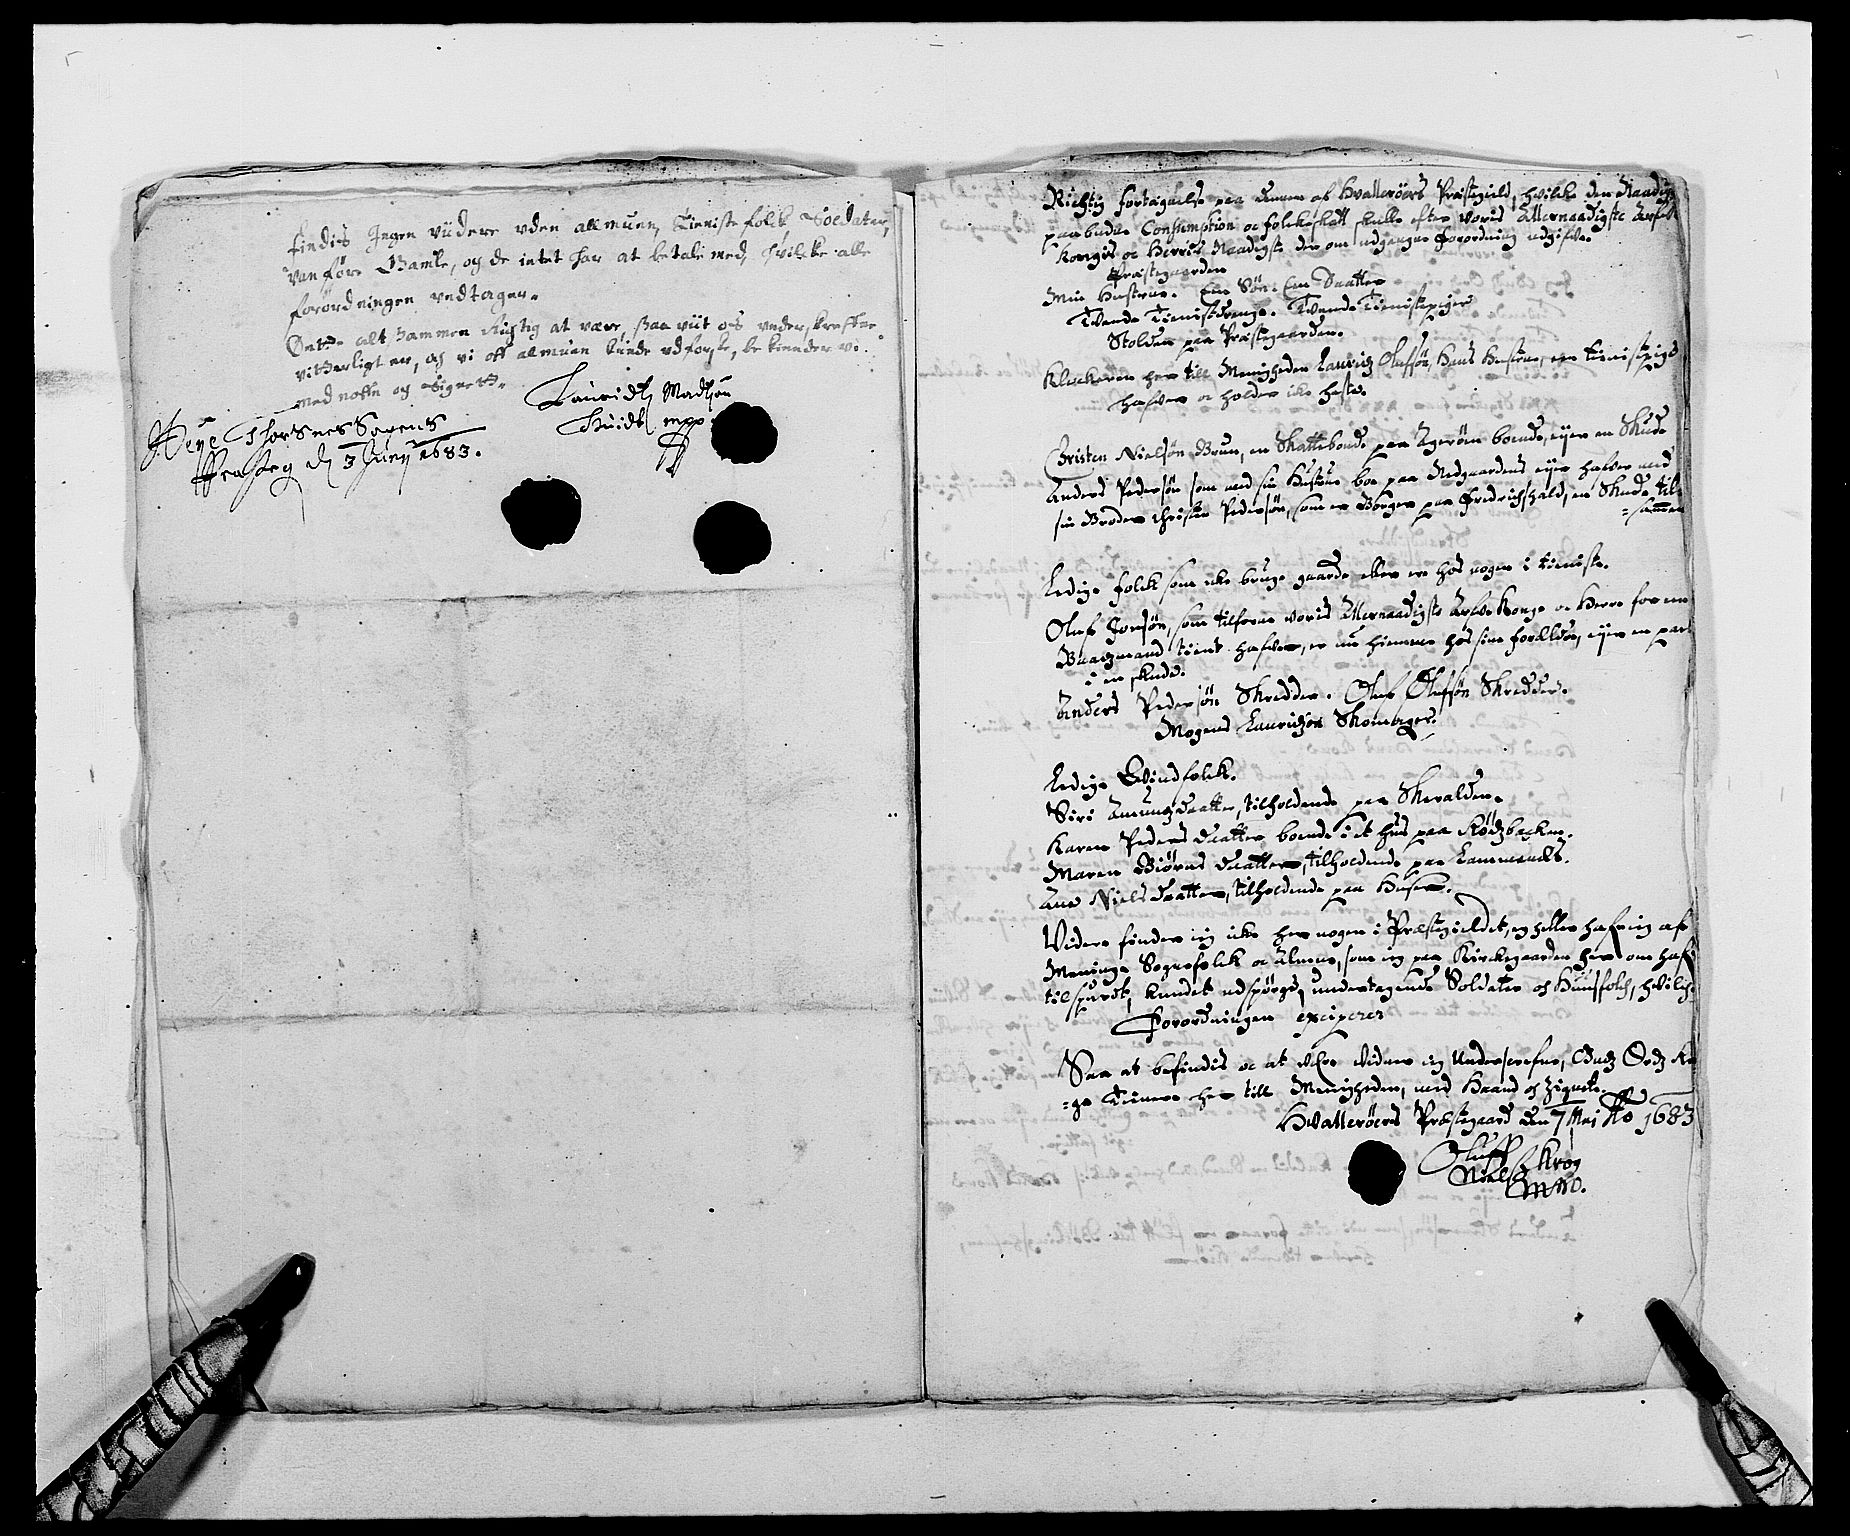 findis Ingen viidere uden allmuen, Tieniste folck, Soldater,
Vanføre Gamle, og de intet har at betale med, hvilcke alle
forordningen undtager.
alt sammen Rigtig at være, saa viit os underskrefne
vitterligt er, och vi aff allmuen kunde udforske, bekiender vi
med noffne og Signetter.
Lauridtz Madtzøn
mpp
d 3 Junij 1683.
Richtig fortegnelse paa dennem af Hvallerøers Præstegield, hvilcke den Naadigst
paabudne Consumption oc folckeskatt skulle efter voris Allernaadigste Arfve
Kongis oc Herris Naadigste der om udgangne forordning udgifve.
Præstegaarden
Min Hustrue. Een Søn. Een Daatter
Tvende Tienistdrenge. Tvende Tienistepiger
Stolden paa Præstegaarden.
Klockeren her till Menigheden Lauritz Olufsøn, Hans Hustrue, een tienistpige
hafver oc holder icke heste.
Christen Nielsøn Brun, en Skattebonde paa Agerøen boende, eyer en Skude
Anders Pedersøn som med sin Hustrue boe paa Nedgaardens eyer hafver med
sin Broder Christen Pedersøn, som er Borger paa Fredrichshald, en Skude til-
=sammen
Ledige folck som icke bruge gaarde eller ere hos nogen i tieniste.
Oluf Jonsøn, som tilforne voris Allernaadigste Arfve Konge oc Herre for en
Baadzmand tient hafver, er nu hiemme hos sine forældre, eyer en part
i en skude.
Anders Pedersøn Skredder. Oluf Olufsøn Skredder.
Mogens Lauritzøn Skomager.
Ledige Qvindfolck.
Siri Amundzdaatter, tilholdende paa Skeralden.
Karen Peders daatter boende i et hus paa Rødzbacken.
Maren Biørns daatter, tilholdende paa
Ane Niels daatter, tilholdende paa Huser.
Videre finder ieg icke her nogen i Præstegieldet, ey heller hafr ieg af
Menige Sognefolck oc Almue, som ieg paa Kirckegaarden her om hafr
tilspurdt, kundet udspørge, undertagende Soldater och Huusfolch, hvilche
Forordningen exciperer
Saa at befindis oc at være vidner ieg Underschrefne, Gudz Ordz Rin-
=ge Tienere her till Menigheden, med Haand och Zignete.
Hvallerøers Præstegaard den 7 Maj Ao 1683
Oluff
Nielsz Krog
Mpp.